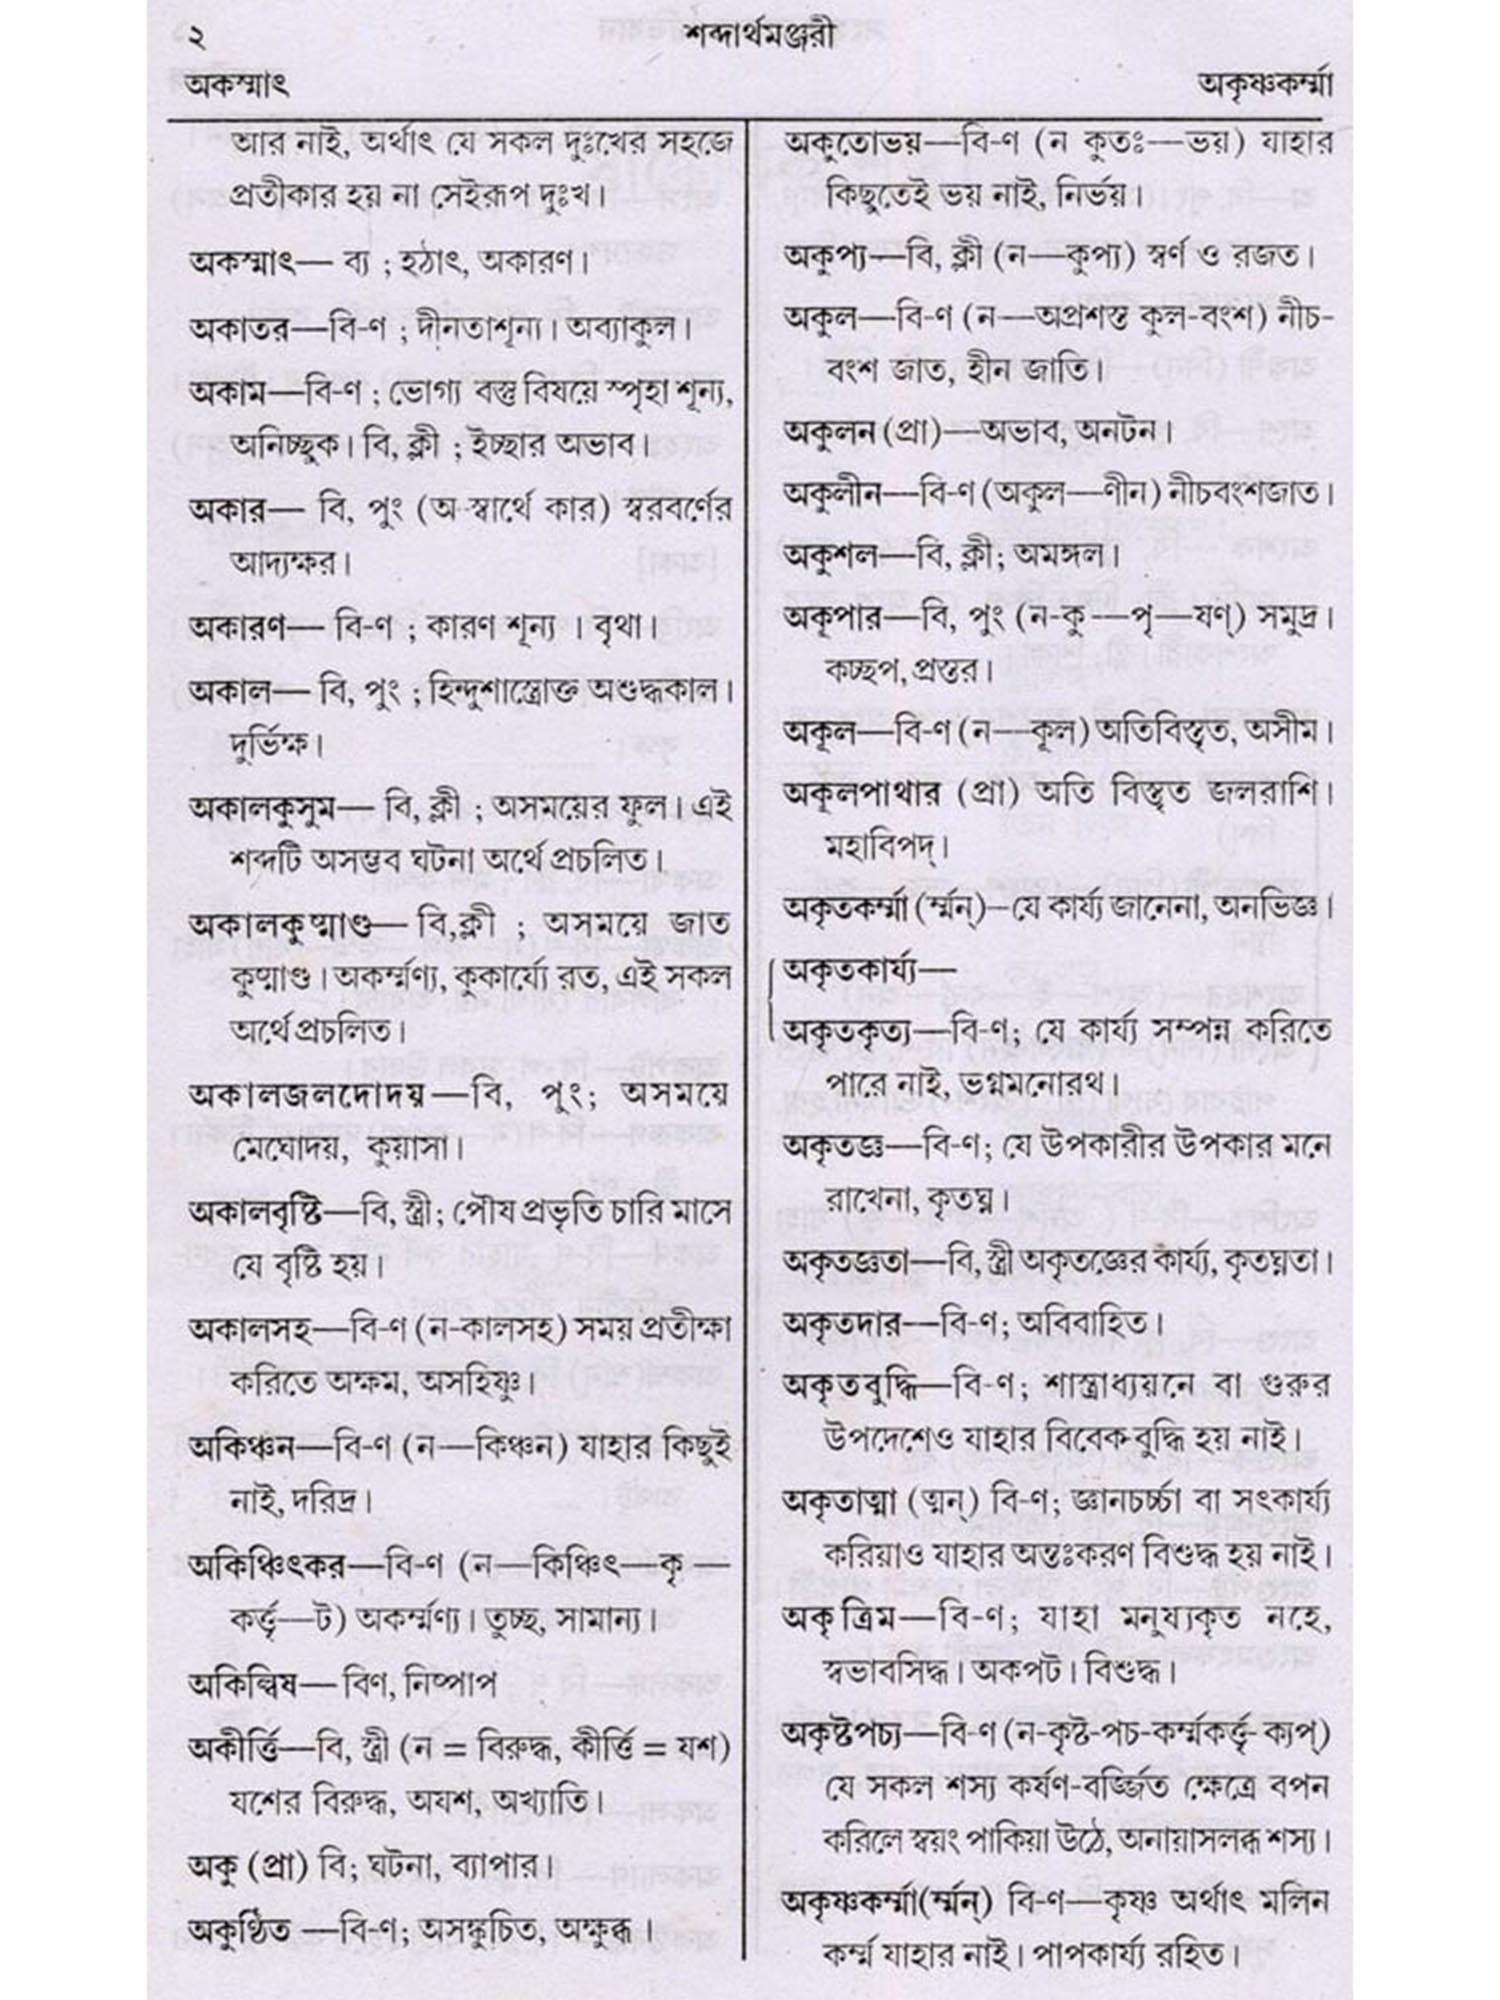 ২
শব্দার্থমঞ্জরী
অকস্মাৎ
অকৃষ্ণকর্ম্মা
আর নাই, অর্থাৎ যে সকল দুঃখের সহজে
প্রতীকার হয় না সেইরূপ দুঃখ।
অকস্মাৎ— ব্য ; হঠাৎ, অকারণ।
অকাতর—বি-ণ ; দীনতাশূন্য। অব্যাকুল।
অকাম—বি-ণ ; ভোগ্য বস্তু বিষয়ে স্পৃহা শূন্য,
অনিচ্ছুক। বি, ক্লী ; ইচ্ছার অভাব।
অকার— বি, পুং (অ-স্বার্থে কার) স্বরবর্ণের
আদ্যক্ষর।
অকারণ— বি-ণ ; কারণ শূন্য । বৃথা।
অকাল— বি, পুং ; হিন্দুশাস্ত্রোক্ত অশুদ্ধকাল।
দুর্ভিক্ষ।
অকালকুসুম— বি, ক্লী ; অসময়ের ফুল। এই
শব্দটি অসম্ভব ঘটনা অর্থে প্রচলিত।
অকালকুষ্মাণ্ড— বি,ক্লী ; অসময়ে জাত
কুষ্মাণ্ড। অকর্ম্মণ্য, কুকার্য্যে রত, এই সকল
অর্থে প্রচলিত।
অকালজলদোদয়—বি, পুং; অসময়ে
মেঘোদয়, কুয়াসা।
অকালবৃষ্টি—বি, স্ত্রী; পৌষ প্রভৃতি চারি মাসে
যে বৃষ্টি হয়।
অকালসহ—বি-ণ (ন-কালসহ) সময় প্রতীক্ষা
করিতে অক্ষম, অসহিষ্ণু।
অকিঞ্চন—বি-ণ (ন—কিঞ্চন) যাহার কিছুই
নাই, দরিদ্র।
অকিঞ্চিৎকর—বি-ণ (ন—কিঞ্চিৎ—কৃ —
কর্ত্তৃ—ট) অকর্ম্মণ্য। তুচ্ছ, সামান্য।
অকিল্বিষ— বিণ, নিষ্পাপ
অকীর্ত্তি—বি, স্ত্রী (ন = বিরুদ্ধ, কীর্ত্তি = যশ)
যশের বিরুদ্ধ, অযশ, অখ্যাতি।
অকু (প্রা) বি; ঘটনা, ব্যাপার।
অকুণ্ঠিত —বি-ণ; অসঙ্কুচিত, অক্ষুব্ধ।
অকুতোভয়—বি-ণ (ন কুতঃ—ভয়) যাহার
কিছুতেই ভয় নাই, নির্ভয়।
অকুপ্য—বি, ক্লী (ন—কুপ্য) স্বর্ণ ও রজত।
অকুল—বি-ণ (ন—অপ্রশস্ত কুল-বংশ) নীচ-
বংশ জাত, হীন জাতি।
অকুলন (প্রা)—অভাব, অনটন।
অকুলীন—বি-ণ (অকুল—ণীন) নীচবংশজাত।
অকুশল—বি, ক্লী; অমঙ্গল।
অকূপার—বি, পুং (ন-কু —পৃ—ষণ্) সমুদ্র।
কচ্ছপ, প্রস্তর।
অকূল—বি-ণ (ন—কূল) অতিবিস্তৃত, অসীম।
অকূলপাথার (প্রা) অতি বিস্তৃত জলরাশি।
মহাবিপদ্।
অকৃতকর্ম্মা (র্ম্মন্)–যে কার্য্য জানেনা, অনভিজ্ঞ।
অকৃতকার্য্য—
অকৃতকৃত্য—বি-ণ; যে কার্য্য সম্পন্ন করিতে
পারে নাই, ভগ্নমনোরথ।
অকৃতজ্ঞ—বি-ণ; যে উপকারীর উপকার মনে
রাখেনা, কৃতঘ্ন।
অকৃতজ্ঞতা—বি, স্ত্রী অকৃতজ্ঞের কার্য্য, কৃতঘ্নতা।
অকৃতদার—বি-ণ; অবিবাহিত।
অকৃতবুদ্ধি—বি-ণ; শাস্ত্রাধ্যয়নে বা গুরুর
উপদেশেও যাহার বিবেক-বুদ্ধি হয় নাই।
অকৃতাত্মা (ত্মন্) বি-ণ; জ্ঞানচর্চ্চা বা সৎকার্য্য
করিয়াও যাহার অন্তঃকরণ বিশুদ্ধ হয় নাই।
অকৃত্রিম—বি-ণ; যাহা মনুষ্যকৃত নহে,
স্বভাবসিদ্ধ। অকপট। বিশুদ্ধ।
অকৃষ্টপচ্য—বি-ণ (ন-কৃষ্ট-পচ-কর্ম্মকর্ত্তৃ-ক্যপ্)
যে সকল শস্য কর্ষণ-বর্জ্জিত ক্ষেত্রে বপন
করিলে স্বয়ং পাকিয়া উঠে, অনায়াসলব্ধ শস্য।
অকৃষ্ণকর্ম্মা(র্ম্মন্) বি-ণ—কৃষ্ণ অর্থাৎ মলিন
কর্ম্ম যাহার নাই। পাপকার্য্য রহিত।